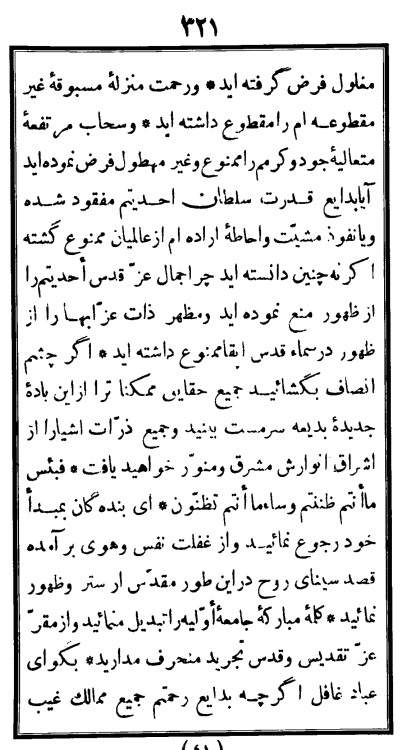 ٣٢١
مغلول فرض گرفته اید * ورحمت منزلهٔ مسبوقهٔ غیر
مقطوعه ام را مقطوع داشته اید * وسحاب مرتفعهٔ
متعالیهٔ جود و کرمم را ممنوع و غیر مهطول فرض نموده اید
آیا بدایع قدرت سلطان احدیتم مفقود شده
و یا نفوذ مشیّت واحاطهٔ اراده ام از عالمیان ممنوع گشته
اگر نه چنین دانسته اید چرا جمال عزّ قدس أحدیتم را
از ظهور منع نموده اید ومظهر ذات عزّ ابها را از
ظهور در سماء قدس ابقا ممنوع داشته اید * اگر چشم
انصاف بگشائید جمیع حقایق ممکنات را از این بادهٔ
جدیدهٔ بدیعه سرمست بینید وجمیع ذرّات اشیا را از
اشراق انوارش مشرق ومنوّر خواهید یافت * فبئس
ما أنتم ظننتم وساء ما أنتم تظنّون * ای بنده گان بمبدأ
خود رجوع نمائید واز غفلت نفس وهوی بر آمده
قصد سینای روح در این طور مقدّس از ستر وظهور
نمائید * کلمهٔ مبارکهٔ جامعهٔ أوّلیه را تبدیل منمائید واز مقرّ
عزّ تقدیس وقدس تجرید منحرف مدارید * بگو ای
عباد غافل اگر چه بدایع رحمتم جمیع ممالک غیب
(٤١)